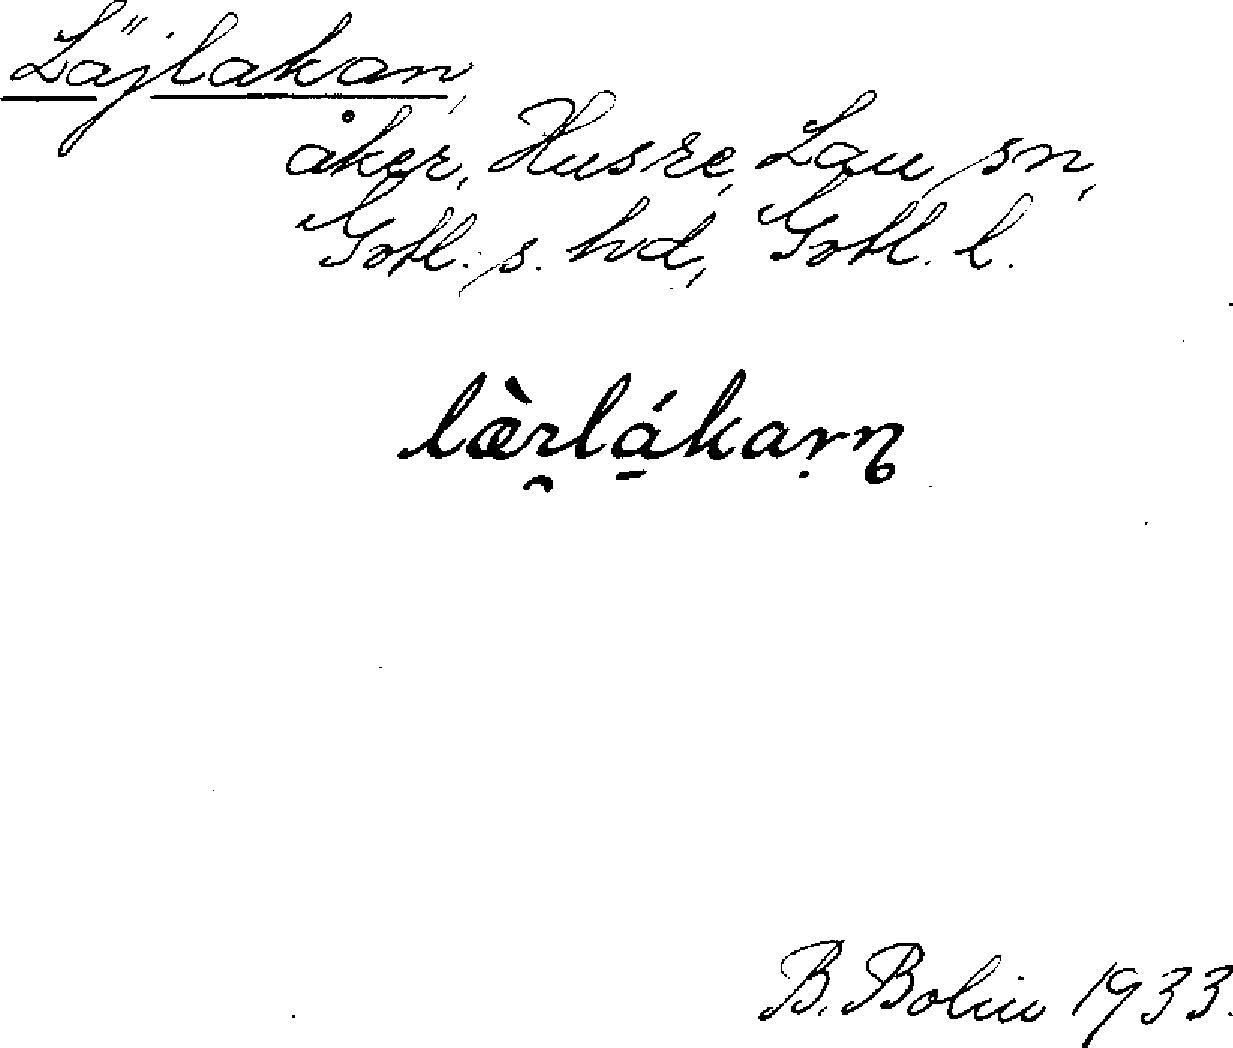 Läjlakan,
åker, Husre, Lau sn,
Gotl. s. hd, Gotl. l.
B. Bolin 1933.